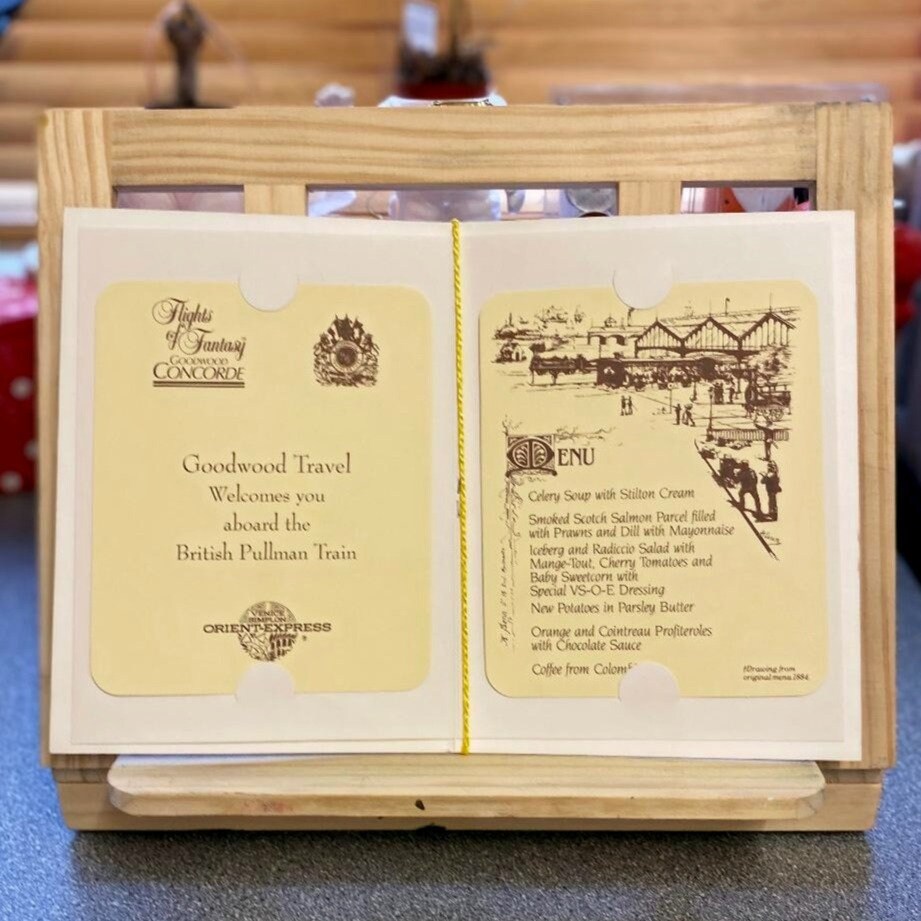 Flights
of Fantasy
GOODWOOD
CONCORDE
Goodwood Travel
Welcomes you
aboard the
British Pullman Train
VENICE
SIMPLON
ORIENT-EXPRESS
MENU
Celery Soup with Stilton Cream
Smoked Scotch Salmon Parcel filled
with Prawns and Dill with Mayonnaise
Iceberg and Radiccio Salad with
Mange-Tout, Cherry Tomatoes and
Baby Sweetcorn with
Special VS-O-E Dressing
New Potatoes in Parsley Butter
Orange and Cointreau Profiteroles
with Chocolate Sauce
Coffee from
†Drawing from
original menu 1884